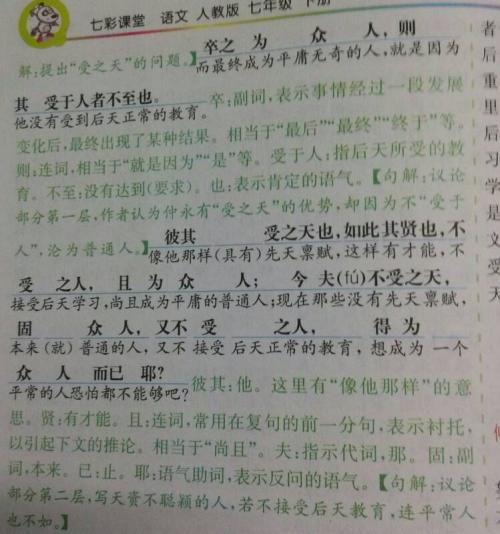 七彩课堂 语文 人教版 七年级 下册
卒之 为 众 人，则
解：提出“受之天”的问题。】而最终成为平庸无奇的人，就是因为
其 受于人者不至也。
他没有受到后天正常的教育。 卒：副词，表示事情经过一段发展
变化后，最终出现了某种结果。相当于“最后”“最终”“终于”等。
则：连词，相当于“就是因为”“是”等。受于人：指后天所受的教
育。不至：没有达到（要求）。也：表示肯定的语气。【句解：议论
部分第一层，作者认为仲永有“受之天”的优势，却因为不“受于
人”，沦为普通人。】
彼其 受之天也，如此其贤也，不
像他那样（具有）先天禀赋，这样有才能，不
受 之人， 且 为 众 人； 今 夫(fú)不受之天，
接受后天学习，尚且成为平庸的普通人；现在那些没有先天禀赋，
固 众 人，又不 受 之人， 得 为
本来（就）普通的人，又不 接受 后天正常的教育，想成为 一个
众 人 而已 耶？
平常的人恐怕都不能够吧？ 彼其：他。这里有“像他那样”的意
思。贤：有才能。且：连词，常用在复句的前一分句，表示衬托，
以引起下文的推论。相当于“尚且”。夫：指示代词，那。固：副
词，本来。已：止。耶：语气助词，表示反问的语气。【句解：议论
部分第二层，写天资不聪颖的人，若不接受后天教育，连平常人
也不如。】
者
后
重
里
后
习
学
是
文
受
天